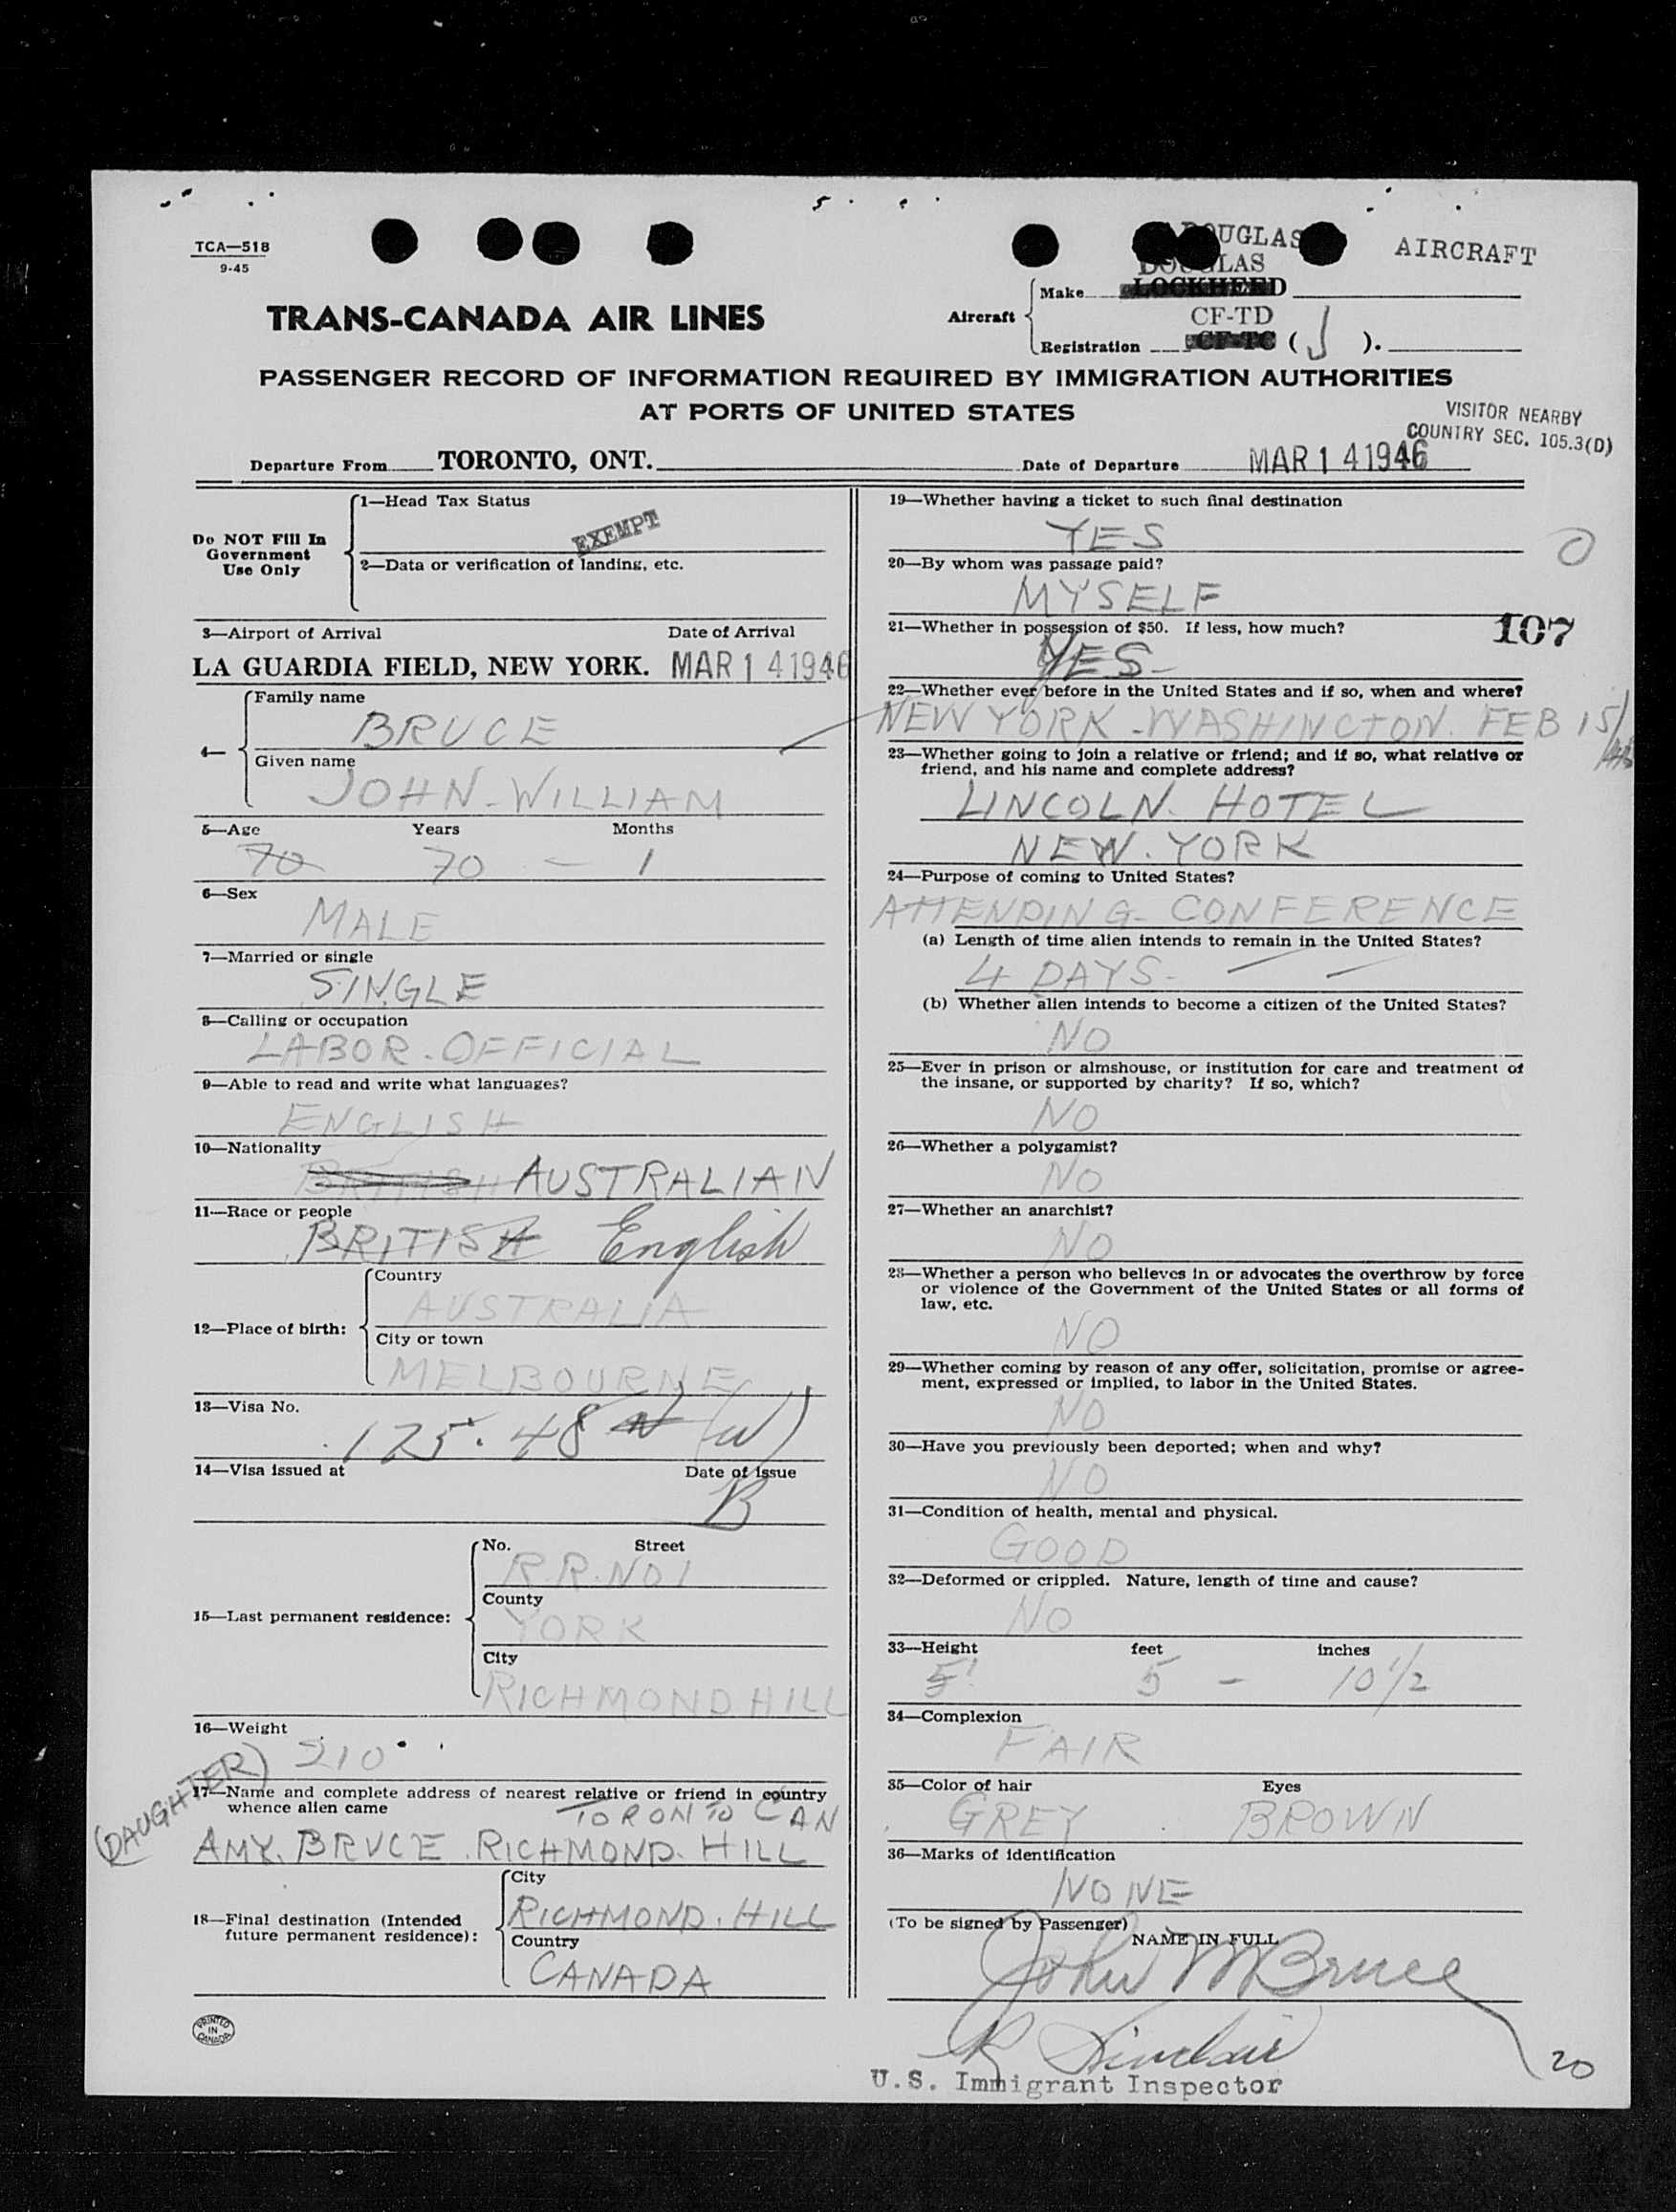 TCA—518
9-45
DOUGLAS AIRCRAFT
DOUGLAS
Make LOCKHEED
TRANS-CANADA AIR LINES
Aircraft
CF-TD
Registration CF-TC ( J ).
PASSENGER RECORD OF INFORMATION REQUIRED BY IMMIGRATION AUTHORITIES
AT PORTS OF UNITED STATES
VISITOR NEARBY
COUNTRY SEC. 105.3(D)
Departure From TORONTO, ONT. Date of Departure MAR 14 1946
Do NOT Fill In
Government
Use Only
1—Head Tax Status
EXEMPT
2—Data or verification of landing, etc.
3—Airport of Arrival Date of Arrival
LA GUARDIA FIELD, NEW YORK. MAR 14 1946
4—
Family name
BRUCE
Given name
JOHN-WILLIAM
5—Age Years Months
70 70 — 1
6—Sex
MALE
7—Married or single
SINGLE
8—Calling or occupation
LABOR. OFFICIAL
9—Able to read and write what languages?
ENGLISH
10—Nationality
BRITISH AUSTRALIAN
11—Race or people
BRITISH English
12—Place of birth:
Country
AUSTRALIA
City or town
MELBOURNE
13—Visa No.
125.48 (W)
14—Visa issued at Date of issue
B
15—Last permanent residence:
No. Street
R.R. NO 1
County
YORK
City
RICHMOND HILL
16—Weight
210
(DAUGHTER)
17—Name and complete address of nearest relative or friend in country
whence alien came
TORONTO CAN
AMY. BRUCE. RICHMOND. HILL
18—Final destination (Intended
future permanent residence):
City
RICHMOND. HILL
Country
CANADA
PRINTED
IN
CANADA
19—Whether having a ticket to such final destination
YES
0
20—By whom was passage paid?
MYSELF
21—Whether in possession of $50. If less, how much?
107
YES-
22—Whether ever before in the United States and if so, when and where?
NEW YORK-WASHINGTON. FEB 15/46
23—Whether going to join a relative or friend; and if so, what relative or
friend, and his name and complete address?
LINCOLN. HOTEL
NEW. YORK
24—Purpose of coming to United States?
ATTENDING- CONFERENCE
(a) Length of time alien intends to remain in the United States?
4 DAYS-
(b) Whether alien intends to become a citizen of the United States?
NO
25—Ever in prison or almshouse, or institution for care and treatment of
the insane, or supported by charity? If so, which?
NO
26—Whether a polygamist?
NO
27—Whether an anarchist?
NO
28—Whether a person who believes in or advocates the overthrow by force
or violence of the Government of the United States or all forms of
law, etc.
NO
29—Whether coming by reason of any offer, solicitation, promise or agree-
ment, expressed or implied, to labor in the United States.
NO
30—Have you previously been deported; when and why?
NO
31—Condition of health, mental and physical.
GOOD
32—Deformed or crippled. Nature, length of time and cause?
NO
33—Height feet inches
5' 5 - 10 1/2
34—Complexion
FAIR
35—Color of hair Eyes
GREY BROWN
36—Marks of identification
NONE
(To be signed by Passenger)
NAME IN FULL
John W Bruce
R Sinclair
20
U.S. Immigrant Inspector